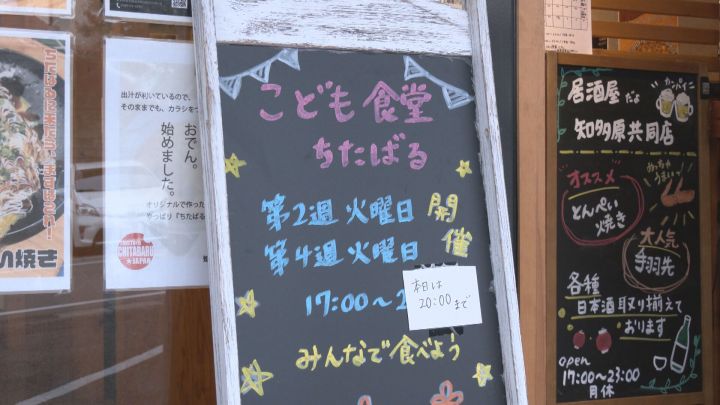 出汁が利いているので、
そのままでも、カラシをつ
おでん。
始めました。
オリジナルで作った
やっぱり「ちたばる
CHITABARU
JAPAN
い焼き
こども食堂
ちたばる
第2週 火曜日
第4週 火曜日
開催
17:00〜2
本日は
20:00まで
みんなで食べよう
カンパイ
居酒屋だよ
知多原共同店
オススメ
とんぺい
焼き
めっちゃ
うまい
大人気
手羽先
各種
日本酒取り揃えて
おります
open
17:00〜23:00
月休